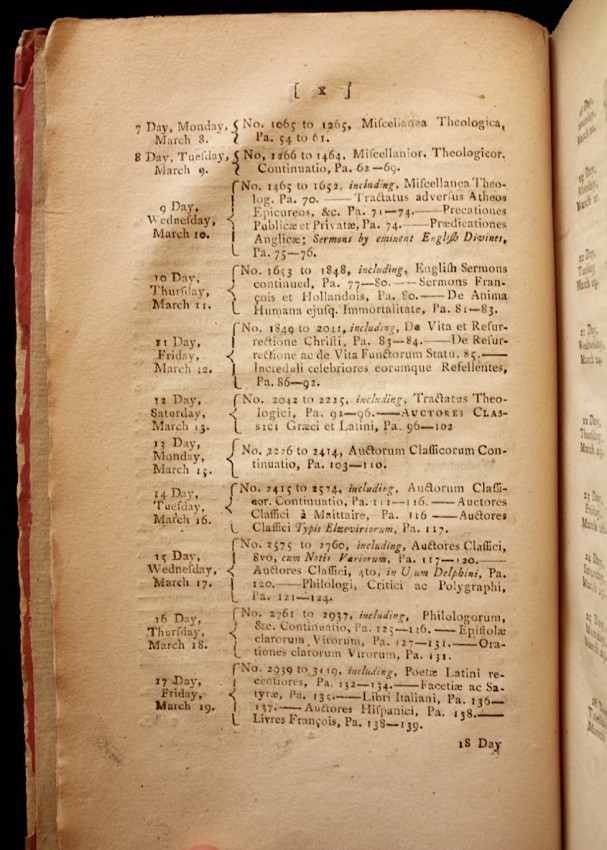 [ x ]
7 Day, Monday, March 8. { No. 1065 to 1265, Miſcellanea Theologica,
Pa. 54 to 61.
8 Day, Tueſday, March 9. { No, 1266 to 1464, Miſcellanior. Theologicor.
Continuatio, Pa. 62—69.
9 Day, Wedneſday, March 10. { No. 1465 to 1652, including, Miſcellanea Theo-
log. Pa. 70. —— Tractatus adverſus Atheos
Epicureos, &c. Pa. 71—74.——Precationes
Publicæ et Privatæ, Pa. 74.—— Prædicationes
Anglicæ; Sermons by eminent Engliſh Divines,
Pa. 75—76.
10 Day, Thurſday, March 11. { No. 1653 to 1848, including, Engliſh Sermons
continued, Pa. 77—80.——Sermons Fran-
çois et Hollandois, Pa. 80.——De Anima
Humana ejuſq. Immortalitate, Pa. 81—83.
11 Day, Friday, March 12. { No. 1849 to 2041, including, De Vita et Reſur-
rectione Chriſti, Pa. 83—84.——De Reſur-
rectione ac de Vita Functorum Statu, 85.——
Increduli celebriores eorumque Refellentes,
Pa. 86—92.
12 Day, Saturday, March 13. { No. 2042 to 2225, including, Tractatus Theo-
logici, Pa. 92—96.——AUCTORES CLAS-
SICI Græci et Latini, Pa. 96—102
13 Day, Monday, March 15. { No. 2226 to 2414, Auctorum Claſſicorum Con-
tinuatio, Pa. 103—110.
14 Day, Tueſday, March 16. { No. 2415 to 2574, including, Auctorum Claſſi-
cor. Continuatio, Pa. 111—116.——Auctores
Claſſici à Maittaire, Pa. 116 —— Auctores
Claſſici Typis Elzeviriorum, Pa. 117.
15 Day, Wedneſday, March 17. { No. 2575 to 2760, including, Auctores Claſſici,
8vo, cum Notis Variorum, Pa. 117—120.——
Auctores Claſſici, 4to, in Uſum Delphini, Pa.
120.——Philologi, Critici ac Polygraphi,
Pa. 121—124.
16 Day, Thurſday, March 18. { No. 2761 to 2937, including, Philologorum,
&c. Continuatio, Pa. 125—126.——Epiſtolæ
clarorum Virorum, Pa. 127—131.——Ora-
tiones clarorum Virorum, Pa. 131.
17 Day, Friday, March 19. { No. 2939 to 3119, including, Poetæ Latini re-
centiores, Pa. 132—134.——Facetiæ ac Sa-
tyræ, Pa. 135.——Libri Italiani, Pa. 136—
137.——Auctores Hiſpanici, Pa. 138.——
Livres François, Pa. 138—139.
18 Day